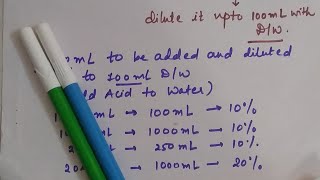 dilute it upto 100mL with
D/W.
mL to be added and diluted
to 100mL D/W
Acid to Water)
→ 100mL → 10%
→ 1000mL → 10%
mL → 250mL → 10%
→ 1000mL → 20%